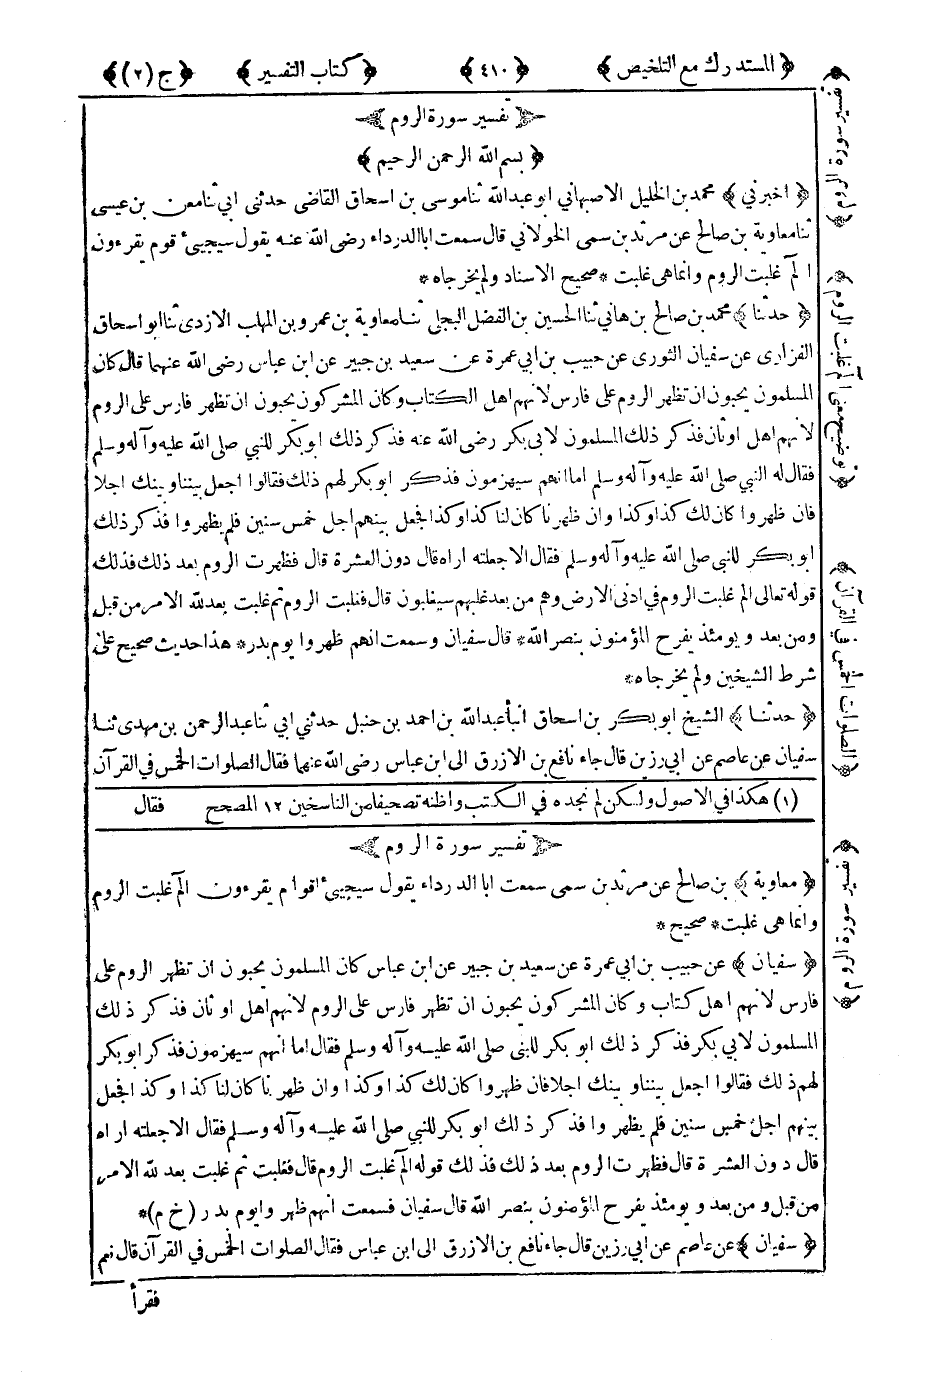 ﴿ المستدرك مع التلخيص ﴾ ﴿ ٤١٠ ﴾ ﴿ كتاب التفسير ﴾ ﴿ ج (٢) ﴾
تفسير سورة الروم
﴿ بسم الله الرحمن الرحيم ﴾
﴿ اخبرني ﴾ محمد بن الخليل الاصبهاني ابو عبد الله ثنا موسى بن اسحاق القاضى حدثنى ابي ثنا معن بن عيسى
ثنا معاوية بن صالح عن مرثد بن سمى الخولاني قال سمعت ابا الدرداء رضى الله عنه يقول سيجيئ قوم يقرءون
الٓم غلبت الروم وانما هى غلبت * صحيح الاسناد ولم يخرجاه *
﴿ حدثنا ﴾ محمد بن صالح بن هاني ثنا الحسين بن الفضل البجلى ثنا معاوية بن عمرو بن المهلب الازدى ثنا ابو اسحاق
الفزارى عن سفيان الثورى عن حبيب بن ابي عمرة عن سعيد بن جبير عن ابن عباس رضى الله عنهما قال كان
المسلمون يحبون ان تظهر الروم على فارس لانهم اهل الكتاب وكان المشركون يحبون ان تظهر فارس على الروم
لانهم اهل اوثان فذكر ذلك المسلمون لابي بكر رضى الله عنه فذكر ذلك ابو بكر للنبي صلى الله عليه وآله وسلم
فقال له النبي صلى الله عليه وآله وسلم اما انهم سيهزمون فذكر ابو بكر لهم ذلك فقالوا اجعل بيننا وبينك اجلا
فان ظهروا كان لك كذا وكذا وان ظهرنا كان لنا كذا وكذا فجعل بينهم اجل خمس سنين فلم يظهروا فذكر ذلك
ابو بكر للنبي صلى الله عليه وآله وسلم فقال الا جعلته اراه قال دون العشرة قال فظهرت الروم بعد ذلك فذلك
قوله تعالى الم غلبت الروم في ادنى الارض وهم من بعد غلبهم سيغلبون قال فغلبت الروم ثم غلبت بعد لله الامر من قبل
ومن بعد ويومئذ يفرح المؤمنون بنصر الله * قال سفيان وسمعت انهم ظهروا يوم بدر * هذا حديث صحيح على
شرط الشيخين ولم يخرجاه *
﴿ حدثنا ﴾ الشيخ ابو بكر بن اسحاق انبأ عبد الله بن احمد بن حنبل حدثني ابي ثنا عبد الرحمن بن مهدى ثنا
سفيان عن عاصم عن ابي رزين قال جاء نافع بن الازرق الى ابن عباس رضى الله عنهما فقال الصلوات الخمس في القرآن
(١) هكذا في الاصول ولكن لم نجده في الكتب واظنه تصحيفا من الناسخين ١٢ المصحح فقال
تفسير سورة الروم
﴿ معاوية ﴾ بن صالح عن مرثد بن سمى سمعت ابا الدرداء يقول سيجيئ اقوام يقرءون الٓم غلبت الروم
وانما هى غلبت * صحيح *
﴿ سفيان ﴾ عن حبيب بن ابي عمرة عن سعيد بن جبير عن ابن عباس كان المسلمون يحبون ان تظهر الروم على
فارس لانهم اهل كتاب وكان المشركون يحبون ان تظهر فارس على الروم لانهم اهل اوثان فذكر ذلك
المسلمون لابي بكر فذكر ذلك ابو بكر للنبى صلى الله عليه وآله وسلم فقال اما انهم سيهزمون فذكر ابو بكر
لهم ذلك فقالوا اجعل بيننا وبينك اجلا فان ظهروا كان لك كذا وكذا وان ظهرنا كان لنا كذا وكذا فجعل
بينهم اجل خمس سنين فلم يظهروا فذكر ذلك ابو بكر للنبي صلى الله عليه وآله وسلم فقال الا جعلته اراه
قال دون العشرة قال فظهرت الروم بعد ذلك فذلك قوله الٓم غلبت الروم قال فغلبت ثم غلبت بعد لله الامر
من قبل ومن بعد ويومئذ يفرح المؤمنون بنصر الله قال سفيان فسمعت انهم ظهروا يوم بدر (خ م) *
﴿ سفيان ﴾ عن عاصم عن ابي رزين قال جاء نافع بن الازرق الى ابن عباس فقال الصلوات الخمس في القرآن قال نعم
فقرأ
﴿ تفسير سورة الروم ﴾
﴿ توضيح معنى الٓم غلبت الروم ﴾
﴿ الصلوات الخمس في القرآن ﴾
﴿ تفسير سورة الروم ﴾